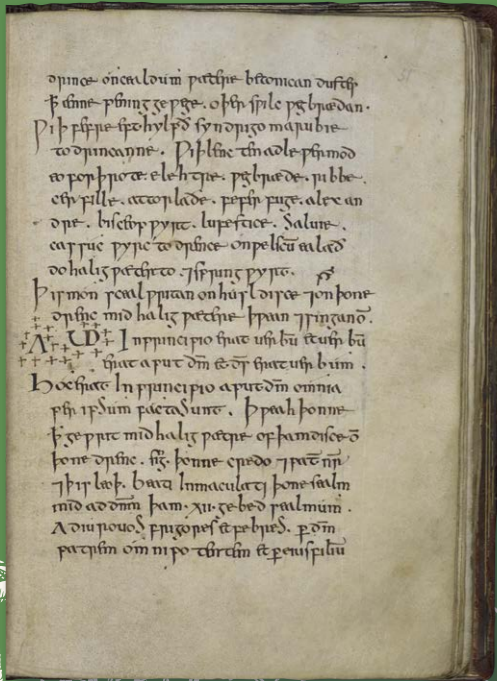 drince on cealdum ƿætre betonican dust
þ ænne pening geƿege. oþer sƿilc ƿegbrædan.
Ƿiþ fefre eft hylpð syndrigo marubie
to drincanne. Ƿiþ lenctenadle ƿermod
eoforþrote. elehtre. ƿegbræde. ribbe.
cerfille. attorlaðe. feferfuge. alexan
dre. bisceopƿyrt. lufestice. saluie.
cassuc ƿyrc to drence on ƿeliscū ealað
do halig ƿæter to. ⁊ springƿyrt.
Þis mon sceal ƿritan on husldisce ⁊ on þone
drenc mid halig ƿætere þƿean ⁊ singan on.
+ + + A + + + Ѡ + + + In principio erat uerbū et uerbū
erat aput dm̄ et ds̄ erat uerbum.
Hoc erat In principio aput dm̄ omnia
per ipsum facta sunt. Þƿeah þonne
þ geƿrit mid halig ƿætre of þam disce ō
þone drenc. sīg. þonne credo ⁊ pat̄ nr̄
⁊ þis leoþ. Beati Inmaculati þone sealm
mid ad dn̄m þam .xii. gebed sealmum.
Adiuro uos frigores et febres. ꝑ dm̄
patrem om̄nipotentem et ꝑ eius filiū